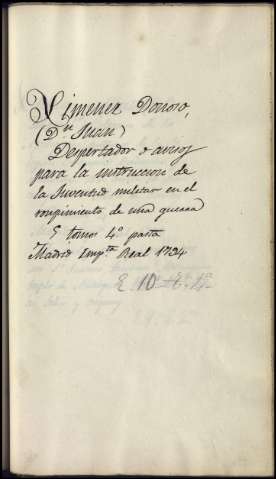 Ximenez Donoso,
(Dn Juan)
Despertador o avisos
para la instruccion de
la Juventud militar en el
rompimiento de una guerra
5 tomos 4º pasta
Madrid Impta Real 1794
E 10